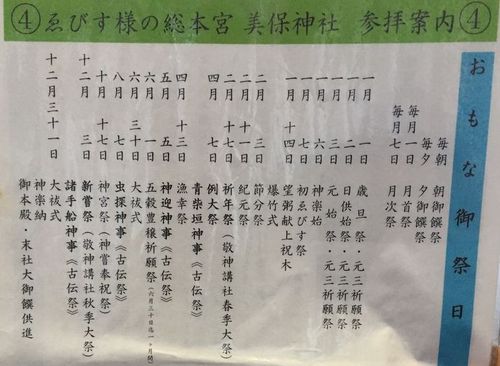 ④ゑびす様の総本宮 美保神社 参拝案内④
おもな御祭日
毎朝 朝御饌祭
毎夕 夕御饌祭
毎月一日 月首祭
毎月七日 月次祭
一月 一日 歳旦祭・元三祈願祭
一月 二日 日供始祭・元三祈願祭
一月 三日 元始祭・元三祈願祭
神楽始
一月 七日 初ゑびす
一月 十四日 望粥献上祝木
爆竹式
二月 三日 節分祭
二月 十一日 紀元祭
二月 十七日 祈年祭(敬神講社春季大祭)
四月 七日 例大祭
青柴垣神事《古伝祭》
四月 十三日 漁幸祭
五月 五日 神迎神事《古伝祭》
六月 一日 五穀豊穣祈願祭(六月三十日迄一ヶ月間)
六月 三十日 大祓式
八月 七日 虫探神事《古伝祭》
十月 十七日 神宮祭(神嘗奉祝祭)
十二月 三日 新嘗祭(敬神講社秋季大祭)
諸手船神事《古伝祭》
十二月三十一日 大祓式
神楽納
御本殿・末社大御饌供進